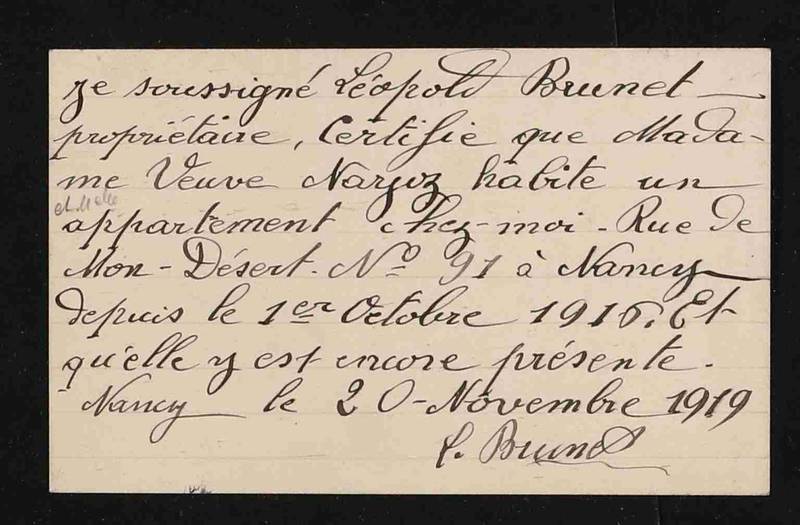 Je soussigné Léopold Brunet
propriétaire, Certifie que Mada-
me Veuve Nazoz habite un
appartement chez-moi - Rue de
Mon-Désert. Nº 91 à Nancy
depuis le 1er Octobre 1916. Et
qu'elle y est encore présente.
Nancy le 20-Novembre 1919
L. Brunet